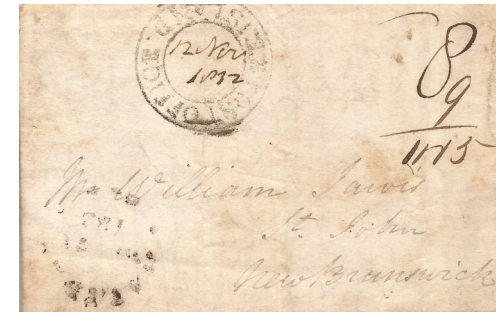 POST OFFICE ISLAND
12 Nov
1832
8
9
1/15
Mr William Jarvis
St. John
New Brunswick